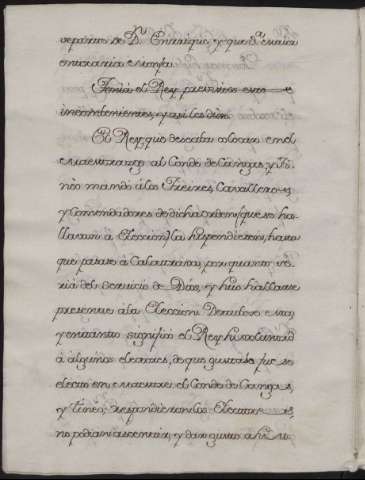 separase de Dn. Enrrique, y que Da. Maria
entraria Monja.
Tenia el Rey previstos estos
inconvenientes, y assi los dixo
El Rey, que deseaba colocar en el
Maestrazgo al Conde de Cangas, y Ti-
neo mandó á los Freires, Cavalleros,
y Comendadores de dicha orden (que se ha-
llavan á Eleccion) la suspendiesen, hasta
que pasase á Calatrava, por quanto se-
ria del servicio de Dios, y suio hallarse
presente á la Eleccion: Detuvose esta,
y entretanto significó el Rey su voluntad
á algunos electores, de que gustava fuese
electo en Maestre el Conde de Cangas,
y Tineo; respondieronle los Electores
no podian asentir, y dar gusto a su